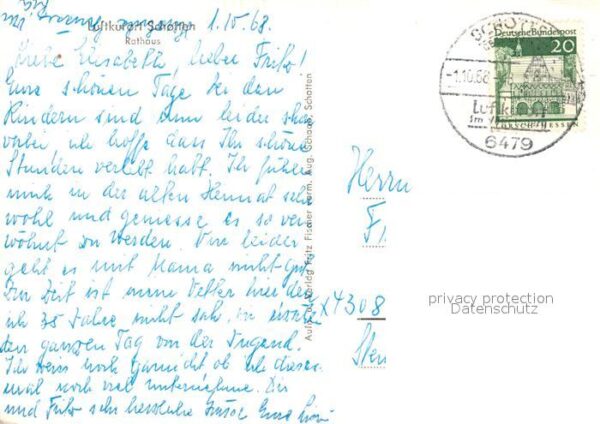 1.10.68.
Luftkurort Schotten
Rathaus
Liebe Elisabeth, lieber Fritz!
Eure schönen Tage bei den
Kindern sind nun leider schon
vorbei ich hoffe dass Ihr schöne
Stunden verlebt habt. Ich fühle
mich in der alten Heimat sehr
wohl und geniesse es so ver
wöhnt zu werden. Nur leider
geht es mit Mama nicht gut.
Zur Zeit ist meine Vetter hier den
ich 35 Jahre nicht sah, wir
den ganzen Tag von der Jugend.
Ich weiss noch garnicht ob ich dieses
mal noch viel unternehme. Dir
und Fritz sehr herzliche Grüsse Eure
Verlag Fritz Fischer vorm. Aug. Schotten
SCHOTTEN
-1.10.68
Luftkurort
im
6479
Deutsche Bundespost
20
Herrn
F
4308
privacy protection
Datenschutz